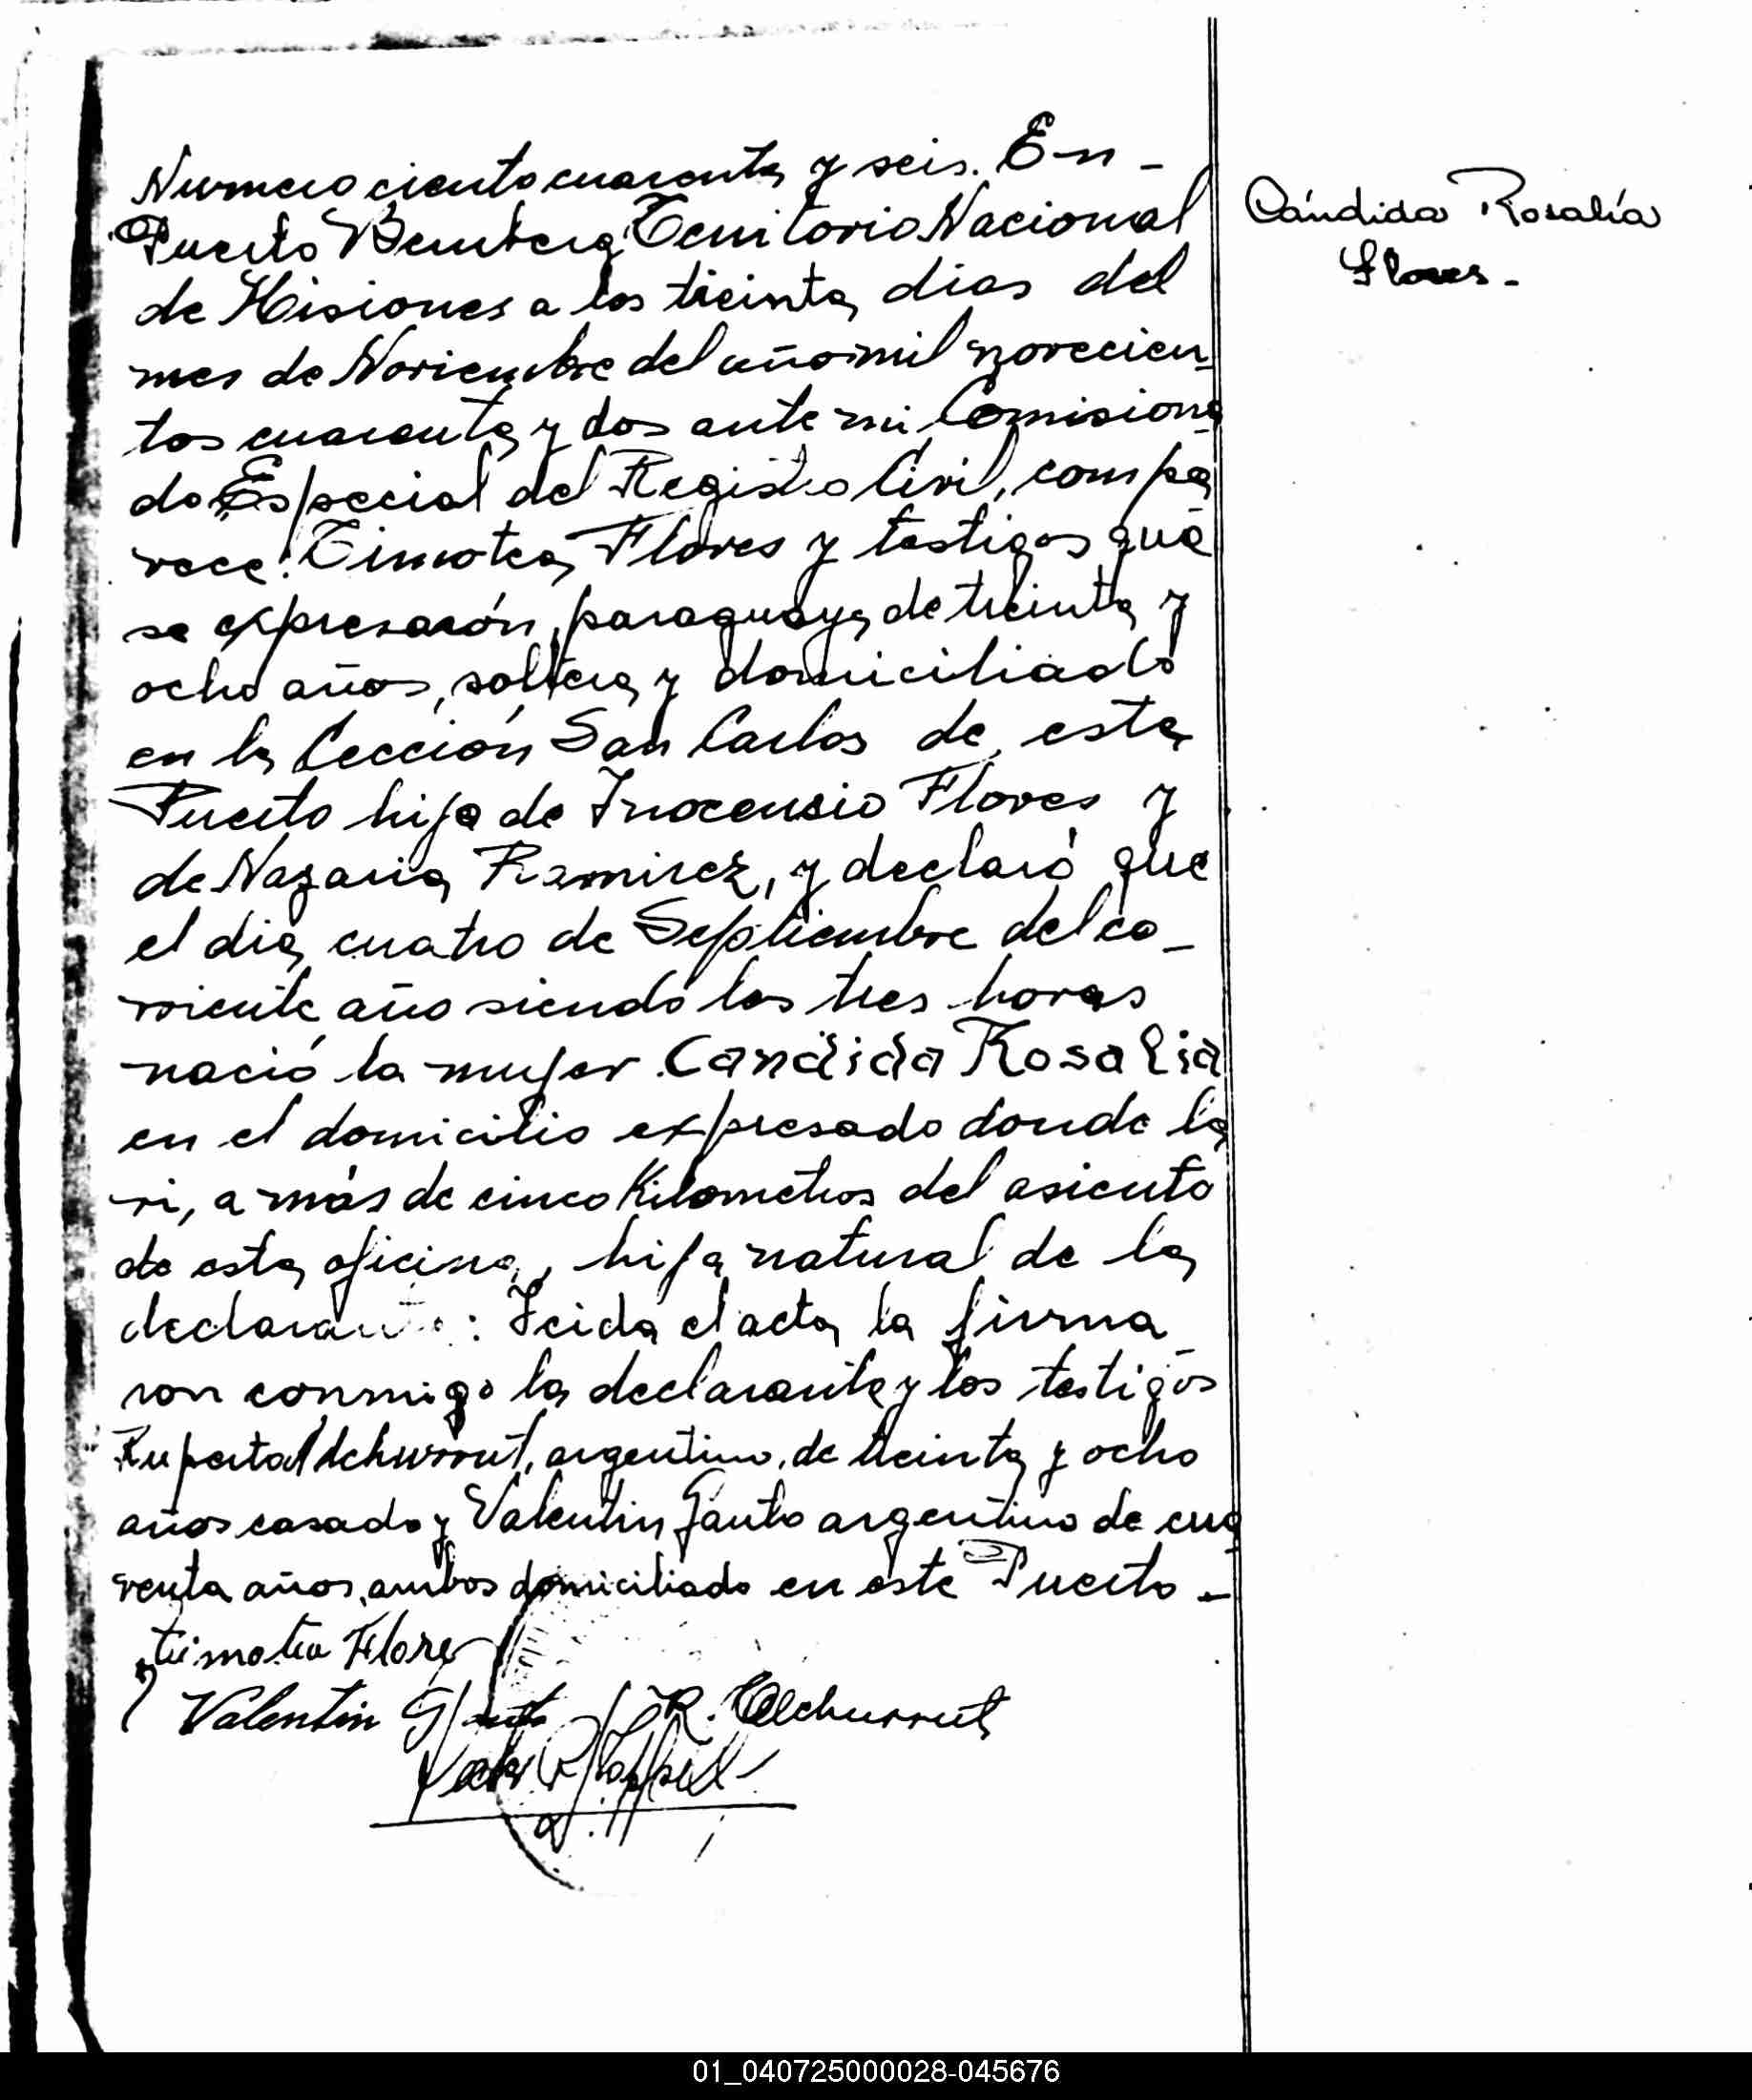 Numero ciento cuarenta y seis. En-
Puerto Bemberg Territorio Nacional
de Misiones a los treinta dias del
mes de Noviembre del año mil novecien-
tos cuarenta y dos ante mi Comisiona
do Especial del Registro Civil, compa
rece: Timotea Flores y testigos que
se expresarón, paraguaya, de treinta y
ocho años, soltera y domiciliado
en la Cección San Carlos de esta
Puerto hija de Inocensio Flores y
de Nazaria Ramirez, y declaró que
el dia cuatro de Septiembre del co-
rriente año siendo las tres horas
nació la mujer Candida Rosalia
en el domicilio expresado donde la
vi, a más de cinco Kilometros del asiento
de esta oficina, hija natural de la
declarante: Leida el acta la firma
ron conmigo la declarante y los testigos
argentino, de treinta y ocho
años casado y Valentin argentino de cua
renta años, ambos domiciliado en este Puerto-
timotea Flore
Valentin
R.
Cándida Rosalía
Flores-
01_040725000028-045676